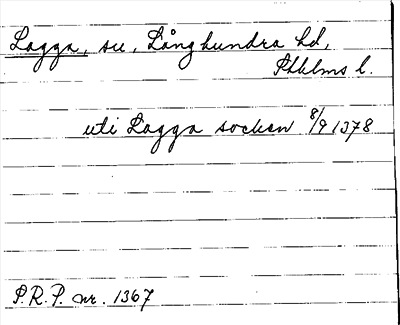 Lagga, sn, Långhundra hd,
Sthlms l.
uti Lagga socken 8/9 1378
P.R.P. nr. 1367